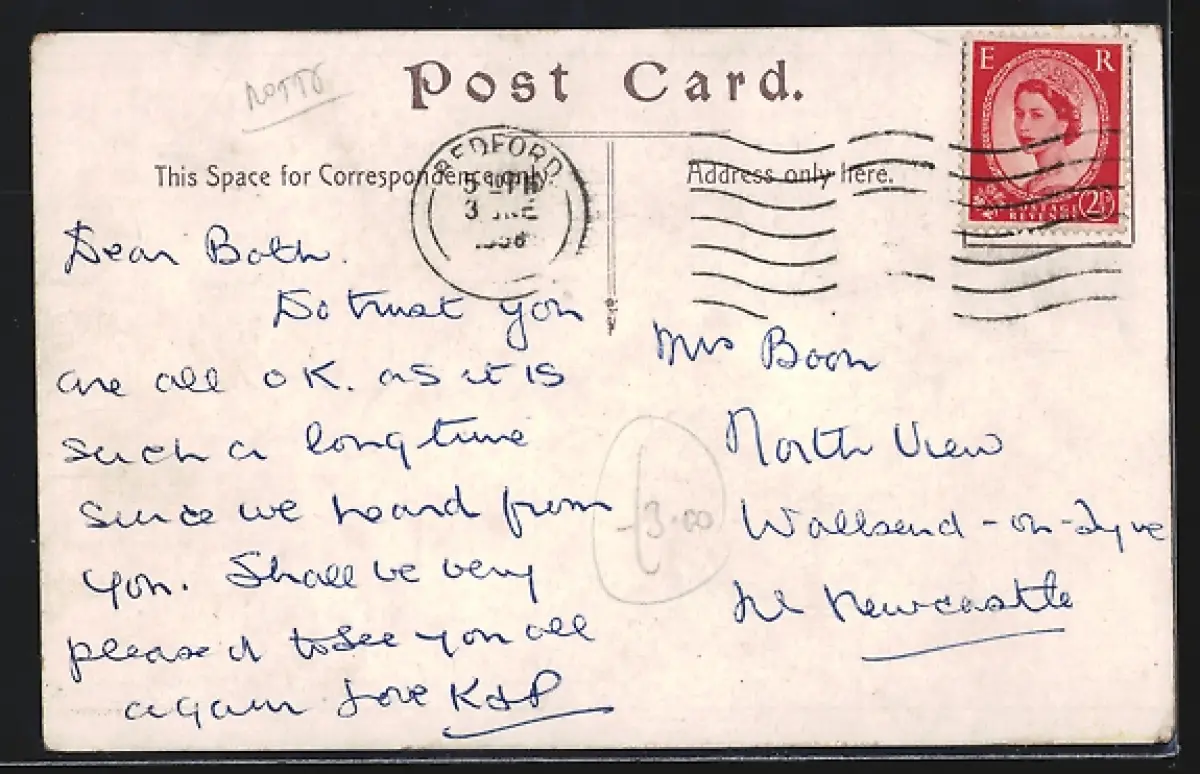 NOTTS
Post Card.
E R
BEDFORD
This Space for Correspondence only.
Address only here.
POSTAGE
REVENUE
2½D
Dear Both.
Do trust you
are all OK. as it is
such a long time
since we heard from
you. Shall be very
pleased to see you all
again Love K&P
Mrs Boon
North View
Wallsend-on-Tyne
Nr Newcastle
3.00